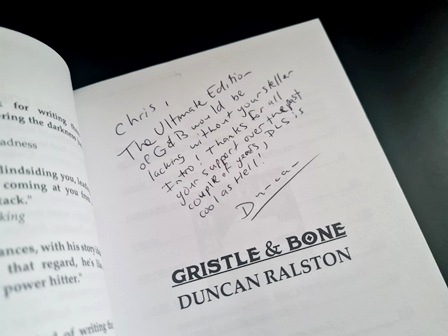 for writing
ering the darkness
adness
lindsiding you, lea
coming at you
tack."
king
ances, with his story
that regard, he's
power hitter."
d of writing
Chris,
The Ultimate Edition
of G&B would be
lacking without your stellar
Intro! Thanks for all
your support over the past
couple of years, DLS is
cool as Hell!
Duncan
GRISTLE & BONE
DUNCAN RALSTON